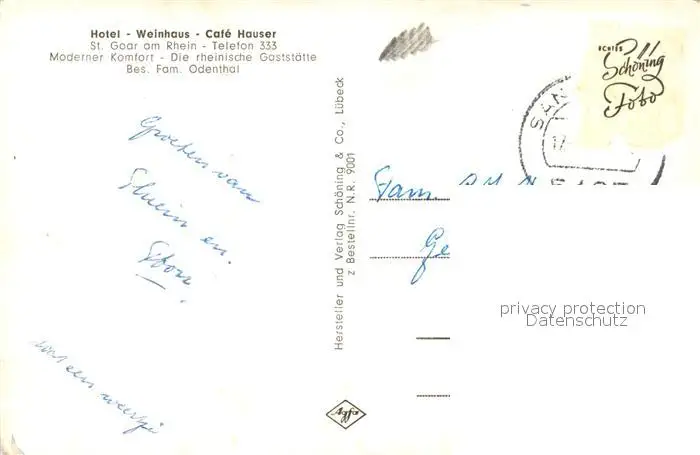 Hotel - Weinhaus - Café Hauser
St. Goar am Rhein - Telefon 333
Moderner Komfort - Die rheinische Gaststätte
Bes. Fam. Odenthal
Groeten van
en
een weekje
Hersteller und Verlag Schöning & Co., Lübeck
Z Bestellnr. N.R. 9001
Agfa
ECHTES
Schöning
Foto
SAN
17
Fam.
Ge
privacy protection
Datenschutz